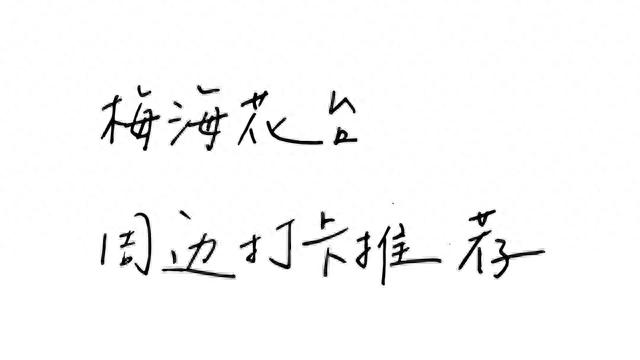 梅海花台
周边打卡推荐